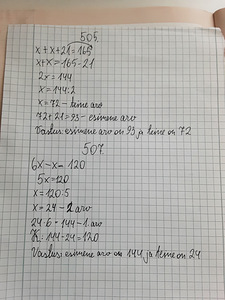 505.
x + x + 21 = 165
x + x = 165 - 21
2x = 144
x = 144 : 2
x = 72 - teine arv
72 + 21 = 93 - esimene arv
Vastus: esimene arv on 93 ja teine on 72
507.
6x - x - 120
5x = 120
x = 120:5
x = 24 - 2. arv
24·6 = 144 - 1. arv
K: 144 - 24 = 120
Vastus: esimene arv on 144 ja teine on 24